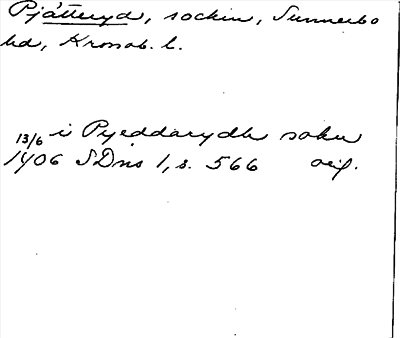 Pjätteryd, socken, Sunnerbo
hd, Kronob. l.
13/6 i Pyeddarydh sokn
1406 SDns 1, s. 566 orig.